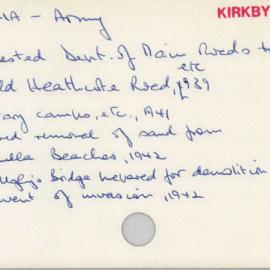 KIRKBY
- Army
ested Dept. of Main Roads t
etc
ld Heathcote Road, 1939
ary camps, etc., 1941
removal of sand from
ulla Beaches, 1942
Bridge prepared for demolition
vent of invasion, 1942